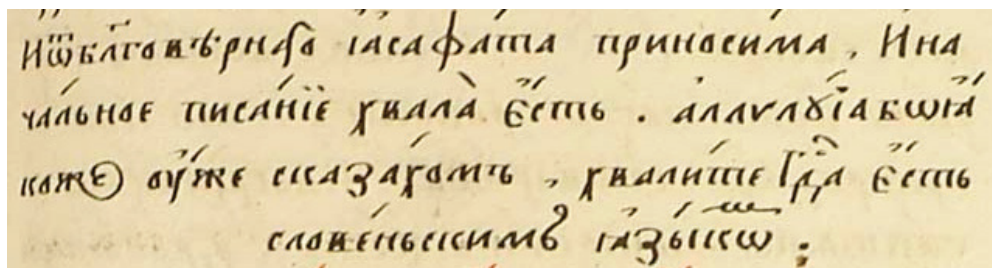 Иѿ бл҃говѣрнаго іасафата приносима, Ина
ча́льное писа́нїе хвала̀ є҆́сть . аллѵлꙋ́іа бѡ ꙗ҆́
коже ᲂу҆́же сказа́хомъ , хвали́те гдⷭ҇а є҆́сть
слове́ньскимъ ꙗ҆зы́кѡⷨ .